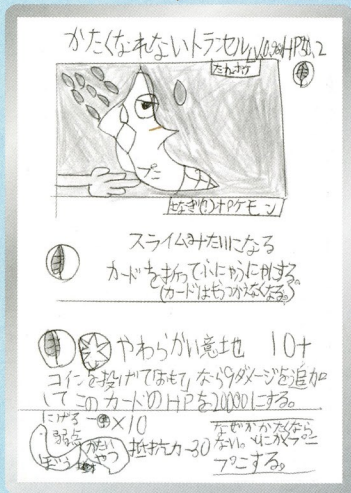 かたくなれないトランセル LV.0.2 HP50.2
たね
スライムみたいになる
カードを折ってふにゃふにゃにする。
(カードはもうつかえなくなる。)
やわらかい意地 10+
コインを投げて「おもて」なら9ダメージを追加
してこのカードのHPを20000にする。
にげる
弱点 ×10
かたいやつ 抵抗力-30
なぜかかたくなら
ない。とにかくプニ
プニする。